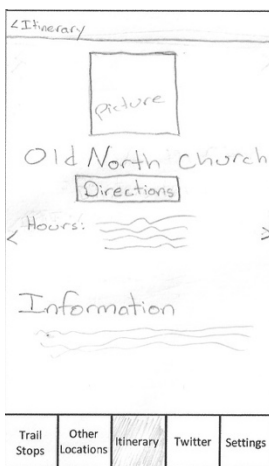 <Itinerary
picture
Old North Church
Directions
Hours:
< >
Information
Trail Stops
Other Locations
Itinerary
Twitter
Settings